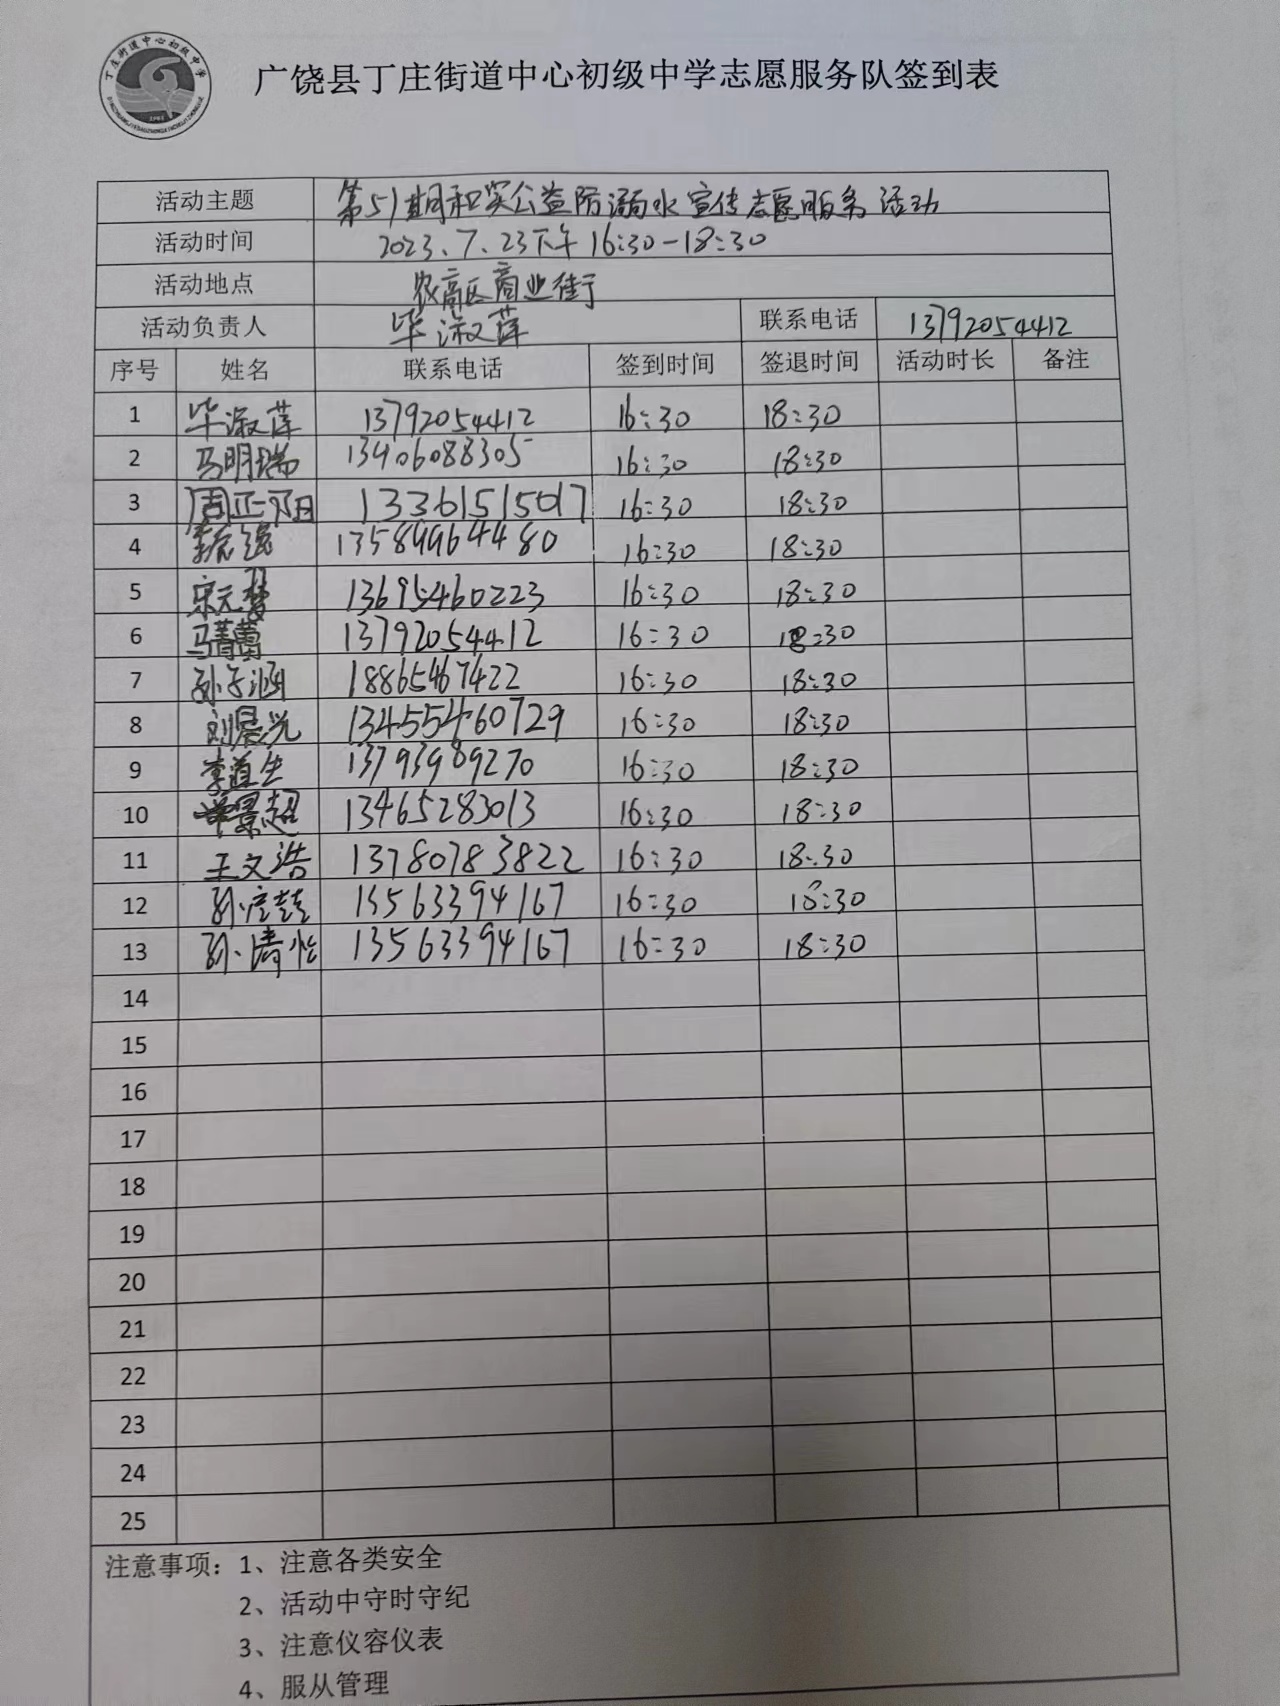 丁庄街道中心初级中学
广饶县丁庄街道中心初级中学志愿服务队签到表
活动主题 第51期和实公益防溺水宣传志愿服务活动
活动时间 2023.7.23下午16:30-18:30
活动地点 农高区商业街
活动负责人 毕淑萍 联系电话 13792054412
序号 姓名 联系电话 签到时间 签退时间 活动时长 备注
1 毕淑萍 13792054412 16:30 18:30
2 马明瑞 13406088305 16:30 18:30
3 周正阳 13361515017 16:30 18:30
4 16:30 18:30
5 宋元梦 13695460223 16:30 18:30
6 马菁蔓 13792054412 16:30 18:30
7 孙子涵 18865467422 16:30 18:30
8 刘晨光 13455460729 16:30 18:30
9 李道生 13793989270 16:30 18:30
10 景超 13465283013 16:30 18:30
11 王文浩 13780783822 16:30 18:30
12 孙 13563394167 16:30 18:30
13 孙清怡 13563394167 16:30 18:30
14
15
16
17
18
19
20
21
22
23
24
25
注意事项：1、注意各类安全
2、活动中守时守纪
3、注意仪容仪表
4、服从管理